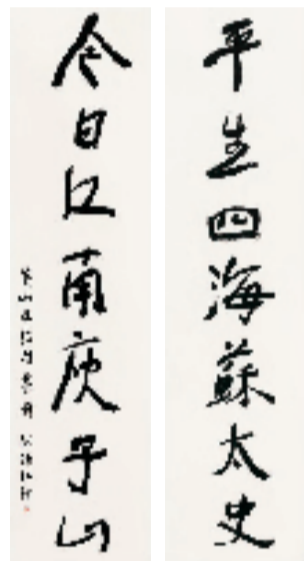 平生四海蘇太史
今日江南庾子山